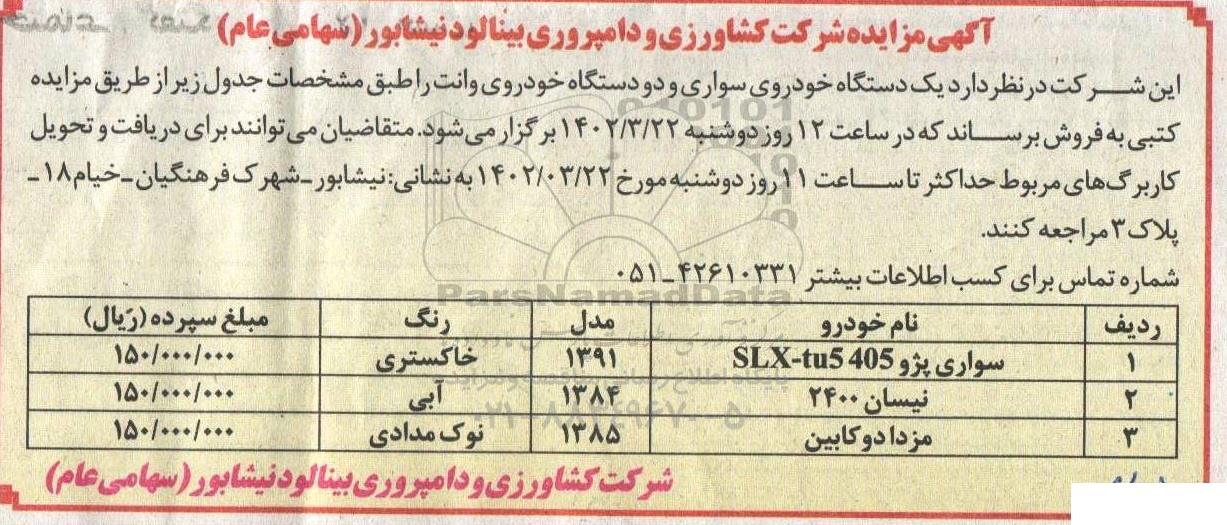 آگهی مزایده شرکت کشاورزی و دامپروری بینالود نیشابور (سهامی عام)
این شرکت در نظر دارد یک دستگاه خودروی سواری و دو دستگاه خودروی وانت را طبق مشخصات جدول زیر از طریق مزایده
کتبی به فروش برساند که در ساعت ۱۲ روز دوشنبه ۱۴۰۲/۳/۲۲ برگزار می‌شود. متقاضیان می‌توانند برای دریافت و تحویل
کاربرگ‌های مربوط حداکثر تا ساعت ۱۱ روز دوشنبه مورخ ۱۴۰۲/۰۳/۲۲ به نشانی: نیشابور ـ شهرک فرهنگیان ـ خیام ۱۸ ـ
پلاک ۳ مراجعه کنند.
شماره تماس برای کسب اطلاعات بیشتر ۴۲۶۱۰۳۳۱ـ۰۵۱
ParsNamadData
ردیف نام خودرو مدل رنگ مبلغ سپرده (ریال)
۱ سواری پژو 405 SLX-tu5 ۱۳۹۱ خاکستری ۱۵۰/۰۰۰/۰۰۰
۲ نیسان ۲۴۰۰ ۱۳۸۴ آبی ۱۵۰/۰۰۰/۰۰۰
۳ مزدا دو کابین ۱۳۸۵ نوک مدادی ۱۵۰/۰۰۰/۰۰۰
شرکت کشاورزی و دامپروری بینالود نیشابور (سهامی عام)